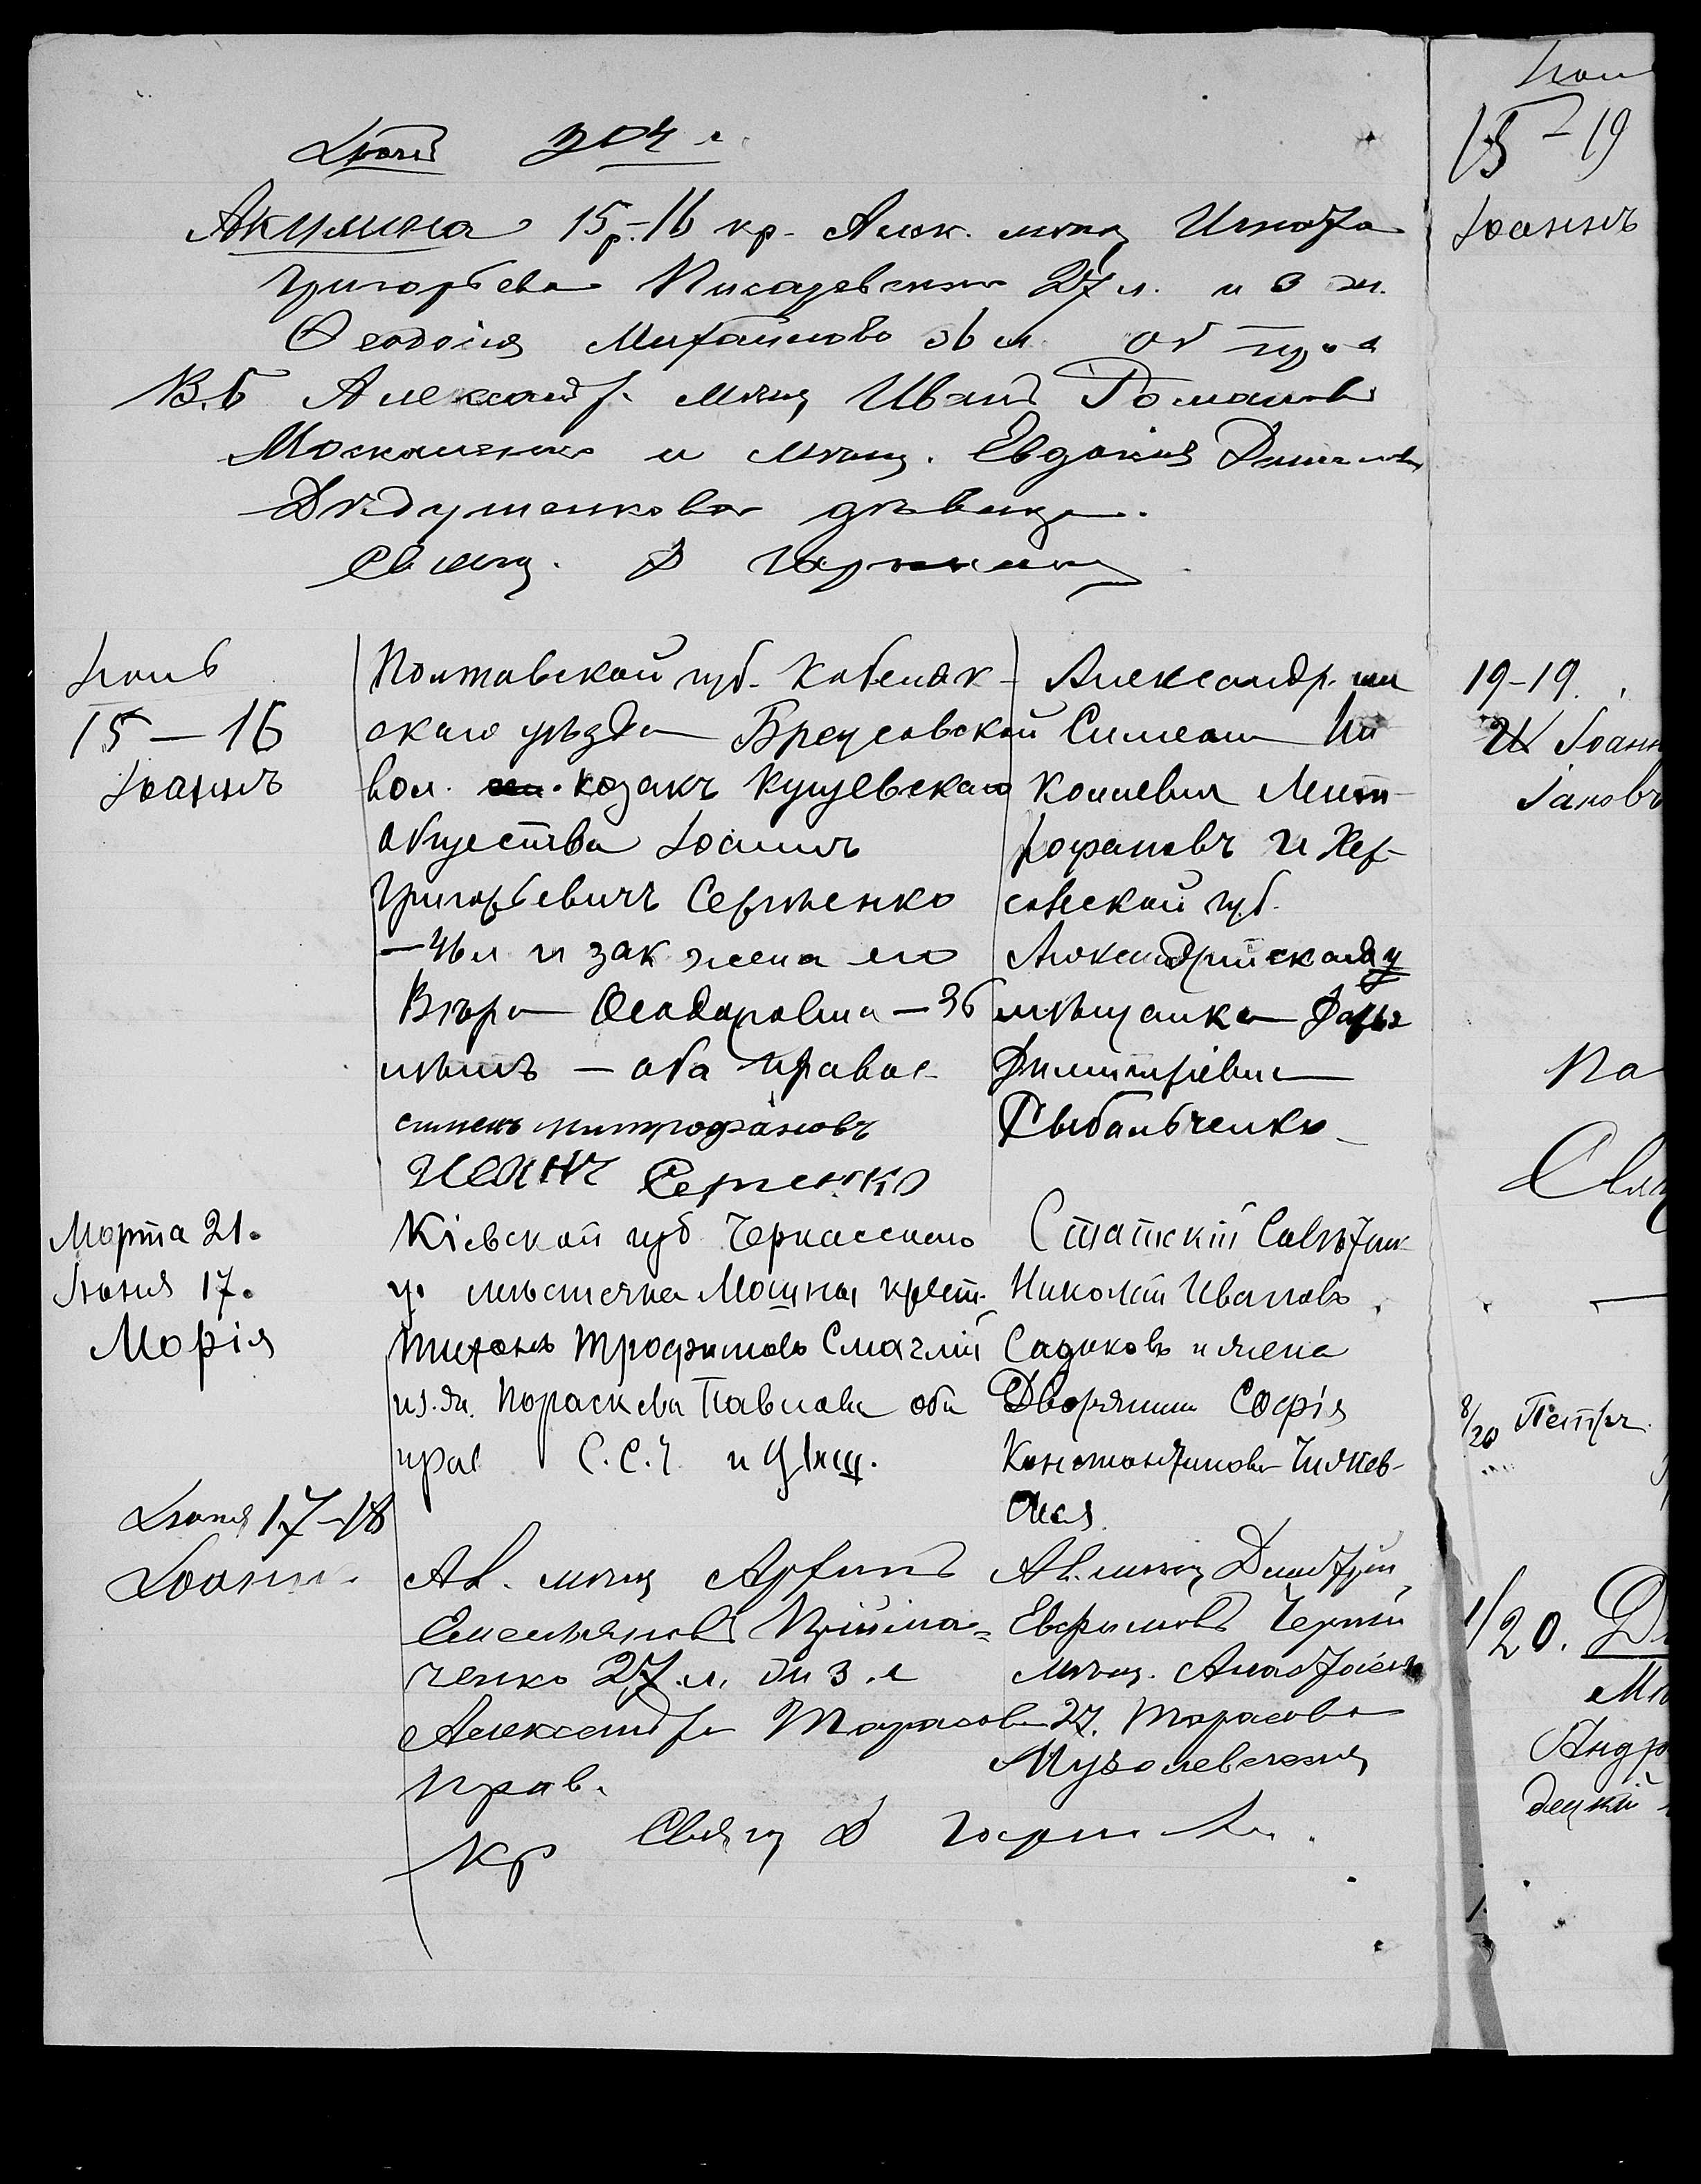 Іюнь 904 г.
Акулина 15 р.-16 кр. Алек. мѣщ Игната
Григорьева Писаревского 27 л. и з ж.
Ѳеодосія Михайлова 26 л. об прав
В.б Александр. мѣщ Иванъ Романовъ
Москаленко и мѣщ. Евдокія
Дѣдушенкова дѣвица.
Свящ. Ѳ
Іюнь
15-16
Іоаннъ
Полтавской губ. Кобеляк-
скаго уѣзда Бреусовской
вол. козакъ Куцевскаго
общества Іоаннъ
Григорьевичъ Сергіенко
-46 л и зак жена его
Вѣра Ѳеодоровна - 36
лѣтъ - оба правос
симонъ митрофановъ
Иванъ Сергіенко
Александр. мѣщ
Симеонъ Ни
колаевичъ Мит-
рофановъ и Хер-
сонской губ.
Александрійскаго у
мѣщанка Дарья
Димитріевна
Рыбальченко
Марта 21.
Іюня 17.
Марія
Кіевской губ Черкасскаго
у. мѣстечка Мошны крест.
Тихонъ Трофимовъ Смаглій
и з. ж. Параскева Павлова оба
прав С.С.Ч. и
Статскій Совѣтник
Николай Ивановъ
Садиковъ и жена
Дворянина Софія
Константинова
ская
Іюня 17-18
Іоаннъ
Ал. мѣщ
Емельяновъ Пріима-
ченко 27 л. и з. ж
Александра Тарасова 27.
прав.
кр Свящ Ѳ
Ал. мѣщ Димитрій
Евфимовъ Черный
мѣщ. Анастасія
Тарасова
Іюн
15-19
Іоаннъ
19-19.
Іоанн
Іаковъ
Па
Свящ
8/20 Петръ
1/20. Ди
Мѣ
Андр
децкій